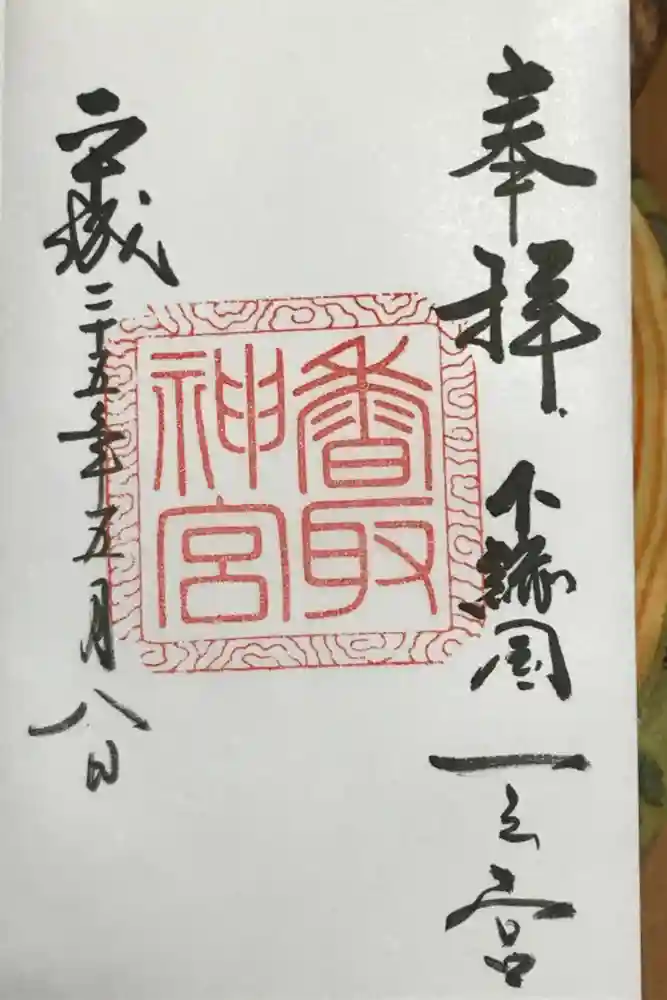 奉拝
下総国
一之宮
香取
神宮
平成二十五年五月八日